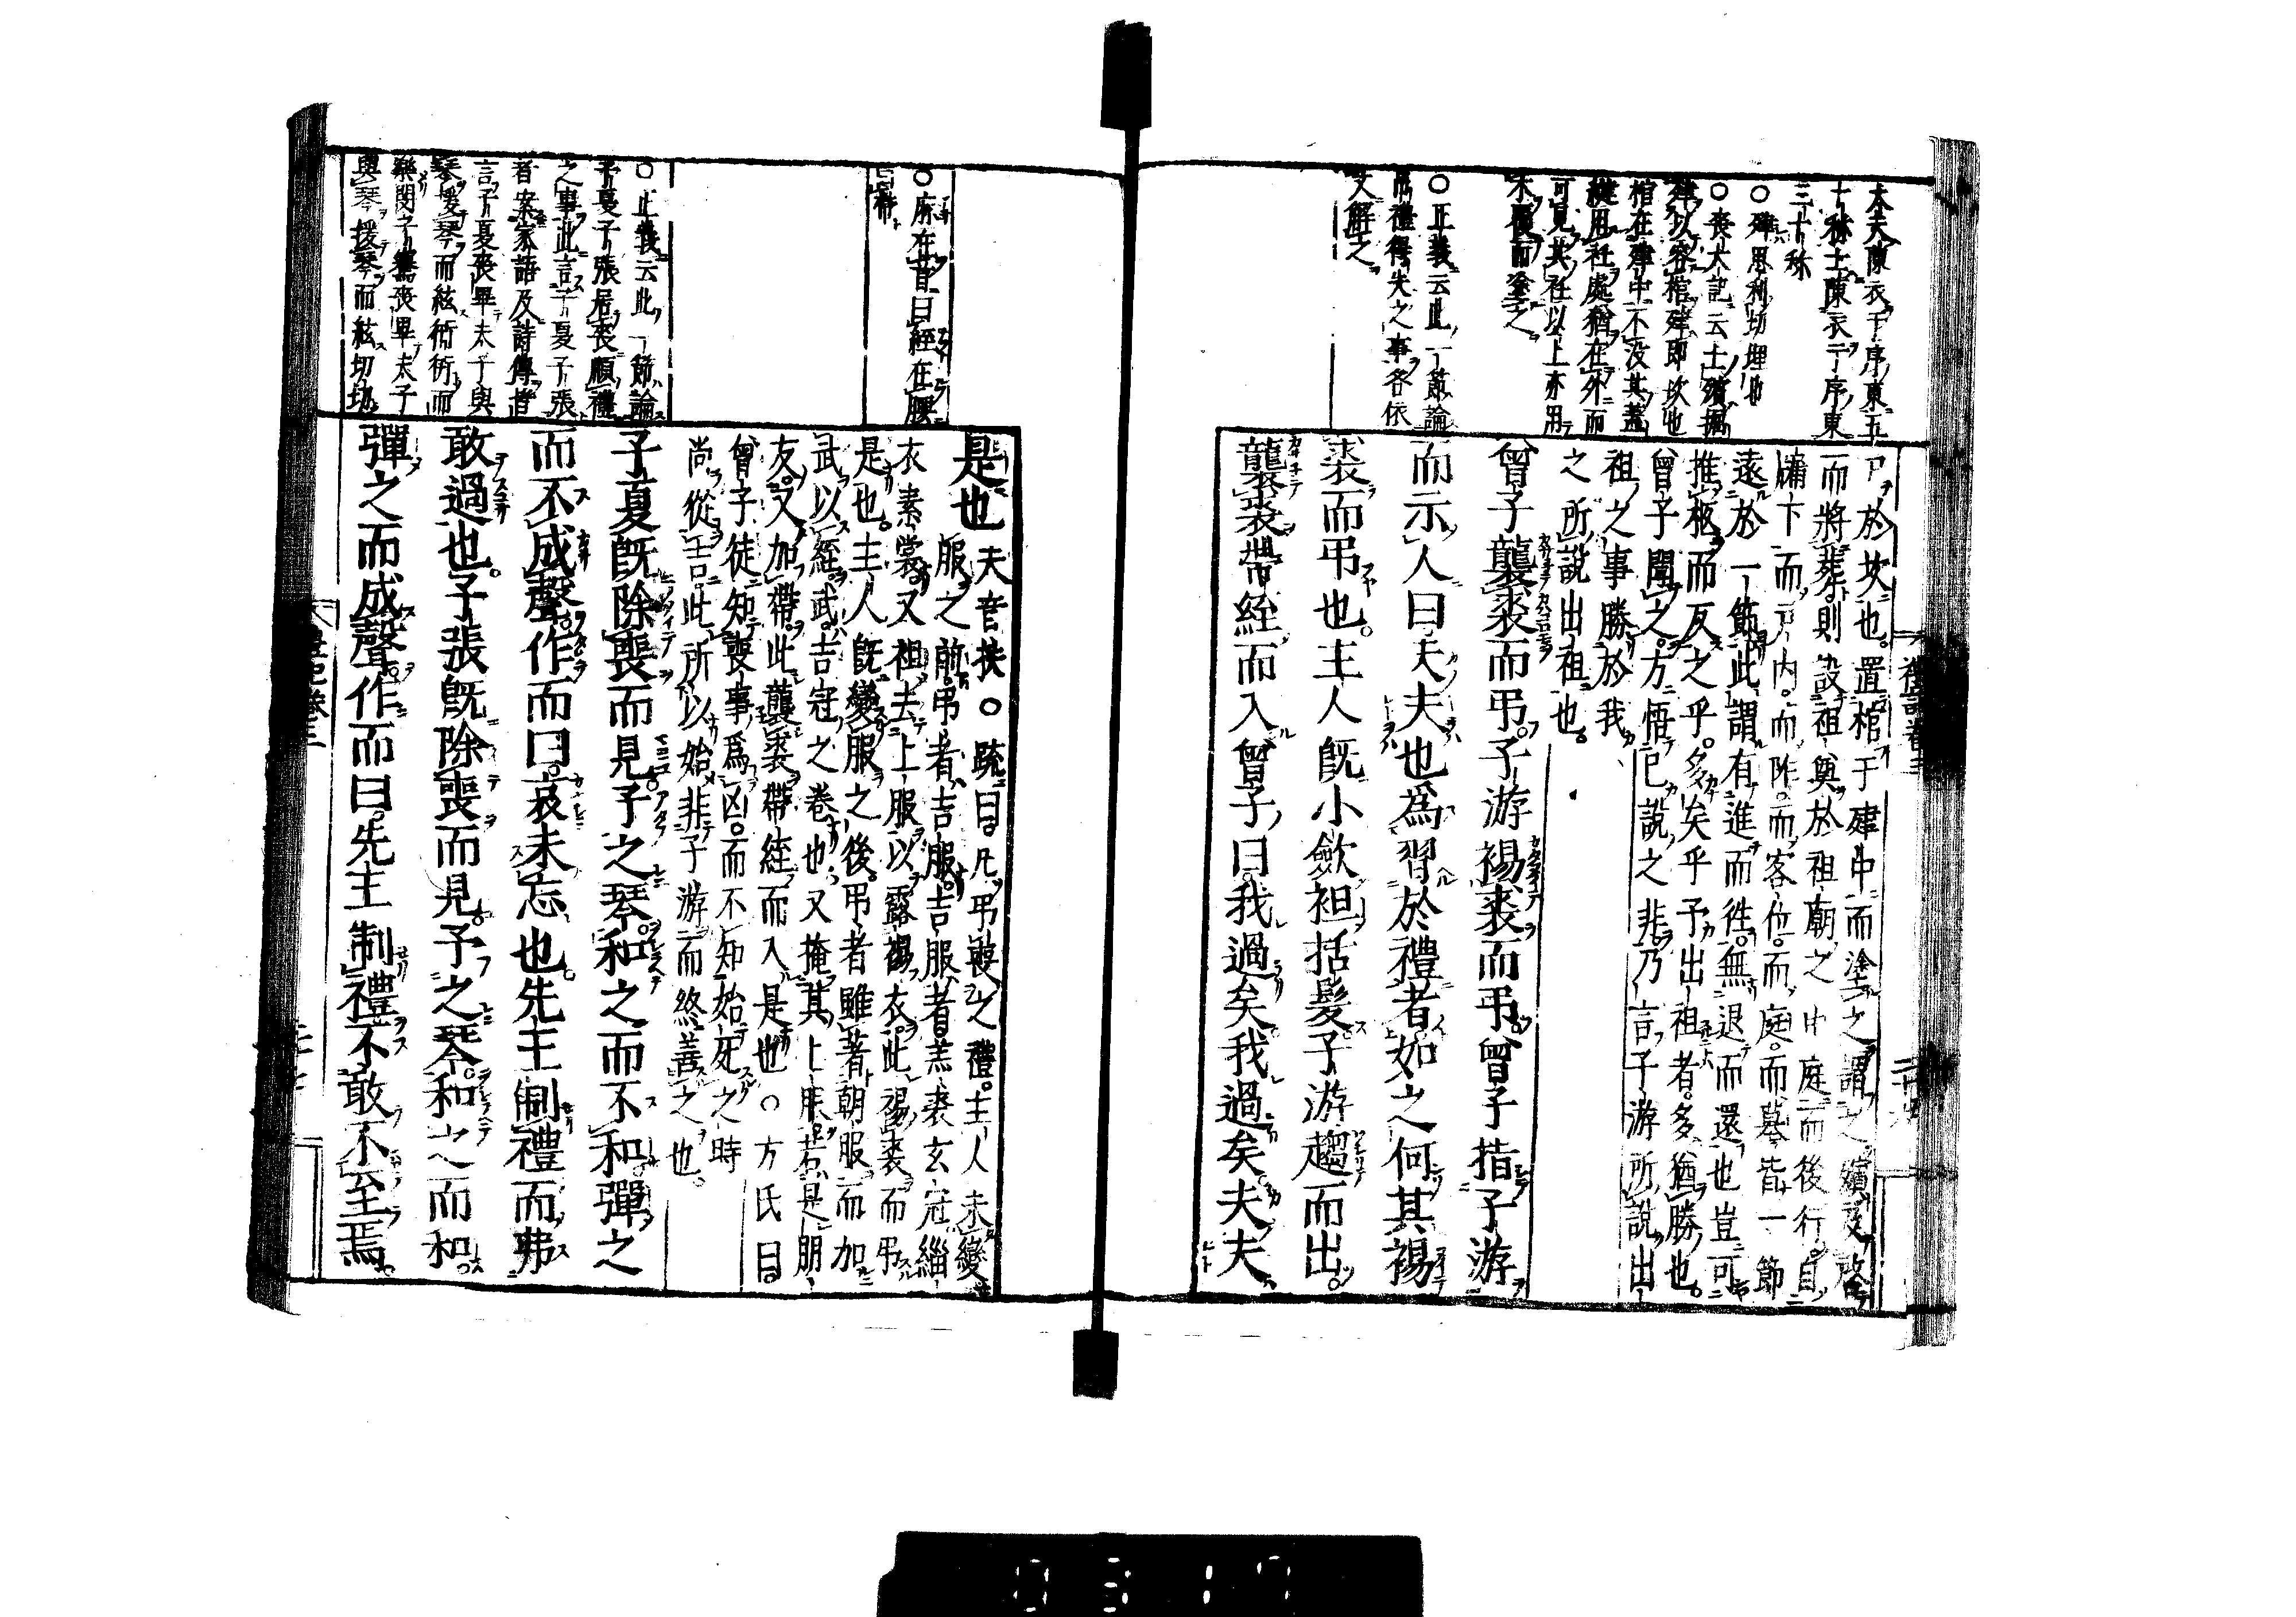 大夫陳衣于序東五
十稱士陳衣于序東
三十稱
○殔思利切埋也
○喪大記云士殯掘
殔以容棺殔即坎也
棺在殔中不没其蓋
縫用衽處猶在外而
可見其衽以上亦用
木覆而塗之
○正義云此一節論
弔禮得失之事各依
文解之
尸於坎也置棺于殔中而塗之謂之殯及啓
而將葬則設祖奠於祖廟之中庭而後行自
牖下而戶内而阼而客位而庭而墓皆一節
遠於一節此謂有進而徃無退而還也豈可
推柩而反之乎多矣乎予出祖者多猶勝也
曾子聞之方悟已說之非乃言子游所說出
祖之事勝於我
之所說出祖也
曾子襲裘而弔子游裼裘而弔曾子指子游
而示人曰夫夫也爲習於禮者如之何其裼
裘而弔也主人既小歛袒括髪子游趨而出
襲裘帶絰而入曾子曰我過矣我過矣夫夫
○麻在首曰絰在腰
曰帶
○正義云此一節論
子夏子張居喪順禮
之事此言子夏子張
者案家語及詩傳皆
言子夏喪畢夫子與
琴援琴而絃衎衎而
樂閔子騫喪畢夫子
與琴援琴而絃切切
是也夫音扶○疏曰凡弔喪之禮主人未變
服之前弔者吉服吉服者羔裘玄冠緇
衣素裳又袒去上服以露裼衣此裼裘而弔
是也主人既變服之後弔者雖著朝服而加
武以絰武吉冠之卷也又掩其上服若是朋
友又加帶此襲裘帶絰而入是也○方氏曰
曾子徒知喪事爲凶而不知始死之時
尚從吉此所以始非子游而終善之也
子夏既除喪而見予之琴和之而不和彈之
而不成聲作而曰哀未忘也先王制禮而弗
敢過也子張既除喪而見予之琴和之而和
彈之而成聲作而曰先王制禮不敢不至焉
禮記卷三